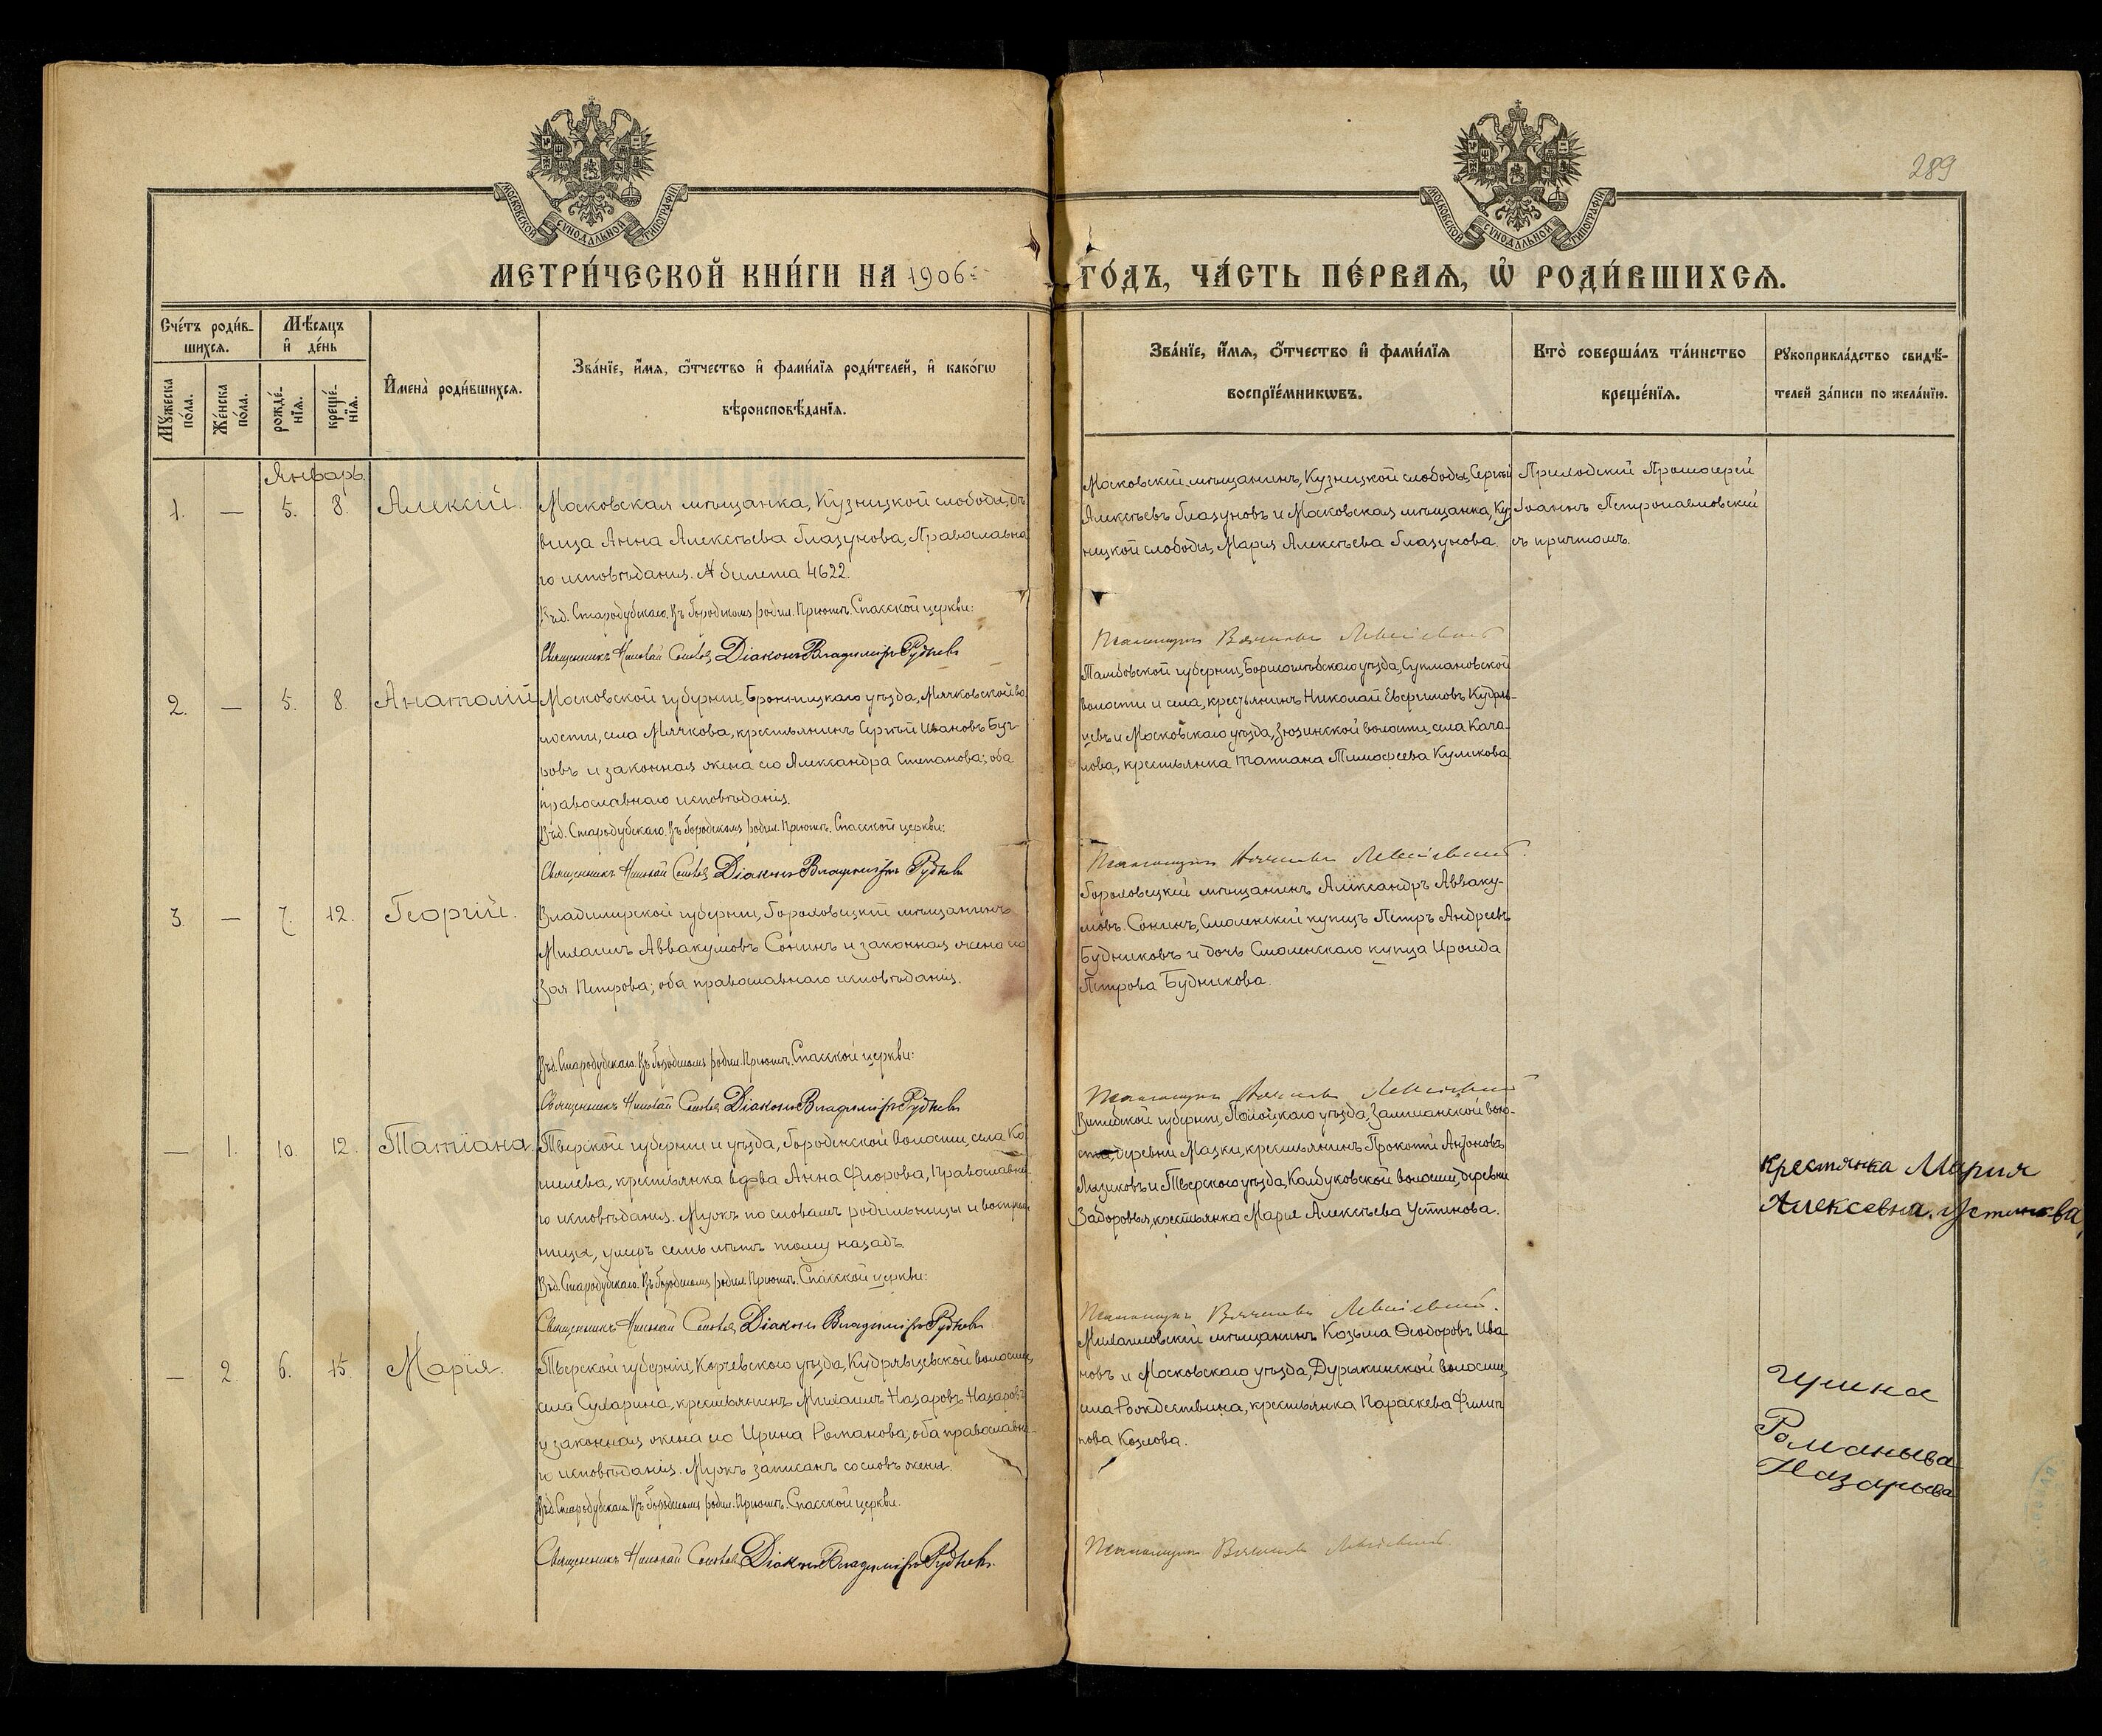 289
МОСКОВСКОЙ СѴНОДАЛЬНОЙ ТИПОГРАФІИ
МОСКОВСКОЙ СѴНОДАЛЬНОЙ ТИПОГРАФІИ
МЕТРИ́ЧЕСКОЙ КНИ́ГИ НА 1906
ГО́ДЪ, ЧА́СТЬ ПЕ́РВАѦ, Ѡ҆ РОДИ́ВШИХСѦ.
Сче́тъ роди́в-
шихсѧ.
Мѣ́сѧцъ
и҆ де́нь
Мꙋ́жеска
по́ла.
Же́нска
по́ла.
рожде́-
нїѧ.
креще́-
нїѧ.
И҆мена̀ роди́вшихсѧ.
Зва́нїе, и҆́мѧ, ѻ҆́тчество и҆ фами́лїѧ роди́телей, и҆ како́гѡ
вѣроисповѣ́данїѧ.
Зва́нїе, и҆́мѧ, ѻ҆́тчество и҆ фами́лїѧ
воспрїе́мникѡвъ.
Кто̀ соверша́лъ та́инство
креще́нїѧ.
Рꙋкоприкла́дство свидѣ́-
телей за́писи по жела́нїю.
Январь.
1. — 5. 8. Алексій.
Московская мѣщанка, Кузницкой слободы, дѣ
вица Анна Алексѣева Глазунова, Православна
го исповѣданія. № билета 4622.
Вѣд. Стародубскаго. Въ Городскомъ родил. Пріютѣ. Спасской церкви:
Священникъ Николай Діаконъ Владиміръ Руднев
Московскій мѣщанинъ, Кузницкой слободы, Сергѣй
Алексѣевъ Глазуновъ и Московская мѣщанка, Куз
ницкой слободы, Марія Алексѣева Глазунова.
Приходскій Протоіерей
Іоаннъ Петропавловскій
съ причтомъ.
2. — 5. 8. Анатолій
Московской губерніи, Бронницкаго уѣзда, Мячковской во
лости, села Мячкова, крестьянинъ Сергѣй Ивановъ
и законная жена его Александра Степанова; оба
православнаго исповѣданія.
Вѣд. Стародубскаго. Въ Городскомъ родил. Пріютѣ. Спасской церкви:
Священникъ Николай Діаконъ Владиміръ Руднев
Тамбовской губерніи, Борисоглѣбскаго уѣзда, Сукмановской
волости и села, крестьянинъ Николай Кудря-
цевъ и Московскаго уѣзда, Зюзинской волости, села Кача-
лова, крестьянка Татіана Тимофеева Куликова
3. — 7. 12. Георгій.
Владимирской губерніи, Гороховецкій мѣщанинъ
Михаилъ Аввакумовъ Сонинъ и законная жена его
Зоя Петрова; оба православнаго исповѣданія.
Вѣд. Стародубскаго. Въ Городскомъ родил. Пріютѣ. Спасской церкви:
Священникъ Николай Діаконъ Владиміръ Руднев
Гороховецкій мѣщанинъ Александръ Авваку-
мовъ Сонинъ, Смоленскій купецъ Петръ Андреевъ
Будниковъ и дочь Смоленскаго купца Ироида
Петрова Будникова.
— 1. 10. 12. Татіана.
Тверской губерніи и уѣзда, Городенской волости, села Ко
шелева, крестьянка вдова Анна Флорова, Православна
го исповѣданія. Мужъ по словамъ родильницы и воспріем
ницы, умеръ семь лѣтъ тому назадъ.
Вѣд. Стародубскаго. Въ Городскомъ родил. Пріютѣ. Спасской церкви:
Священникъ Николай Діаконъ Владиміръ Руднев
Витебской губерніи, Полоцкаго уѣзда, воло-
сти, деревни Мазки, крестьянинъ Прокопій Антоновъ
и Тверскаго уѣзда, волости, деревни
Заборовья, крестьянка Марія Алексѣева Устинова.
Крестянка Мария
Алексевна Устинова
— 2. 6. 15. Марія.
Тверской губерніи, Корчевскаго уѣзда, Кудрявцевской волости,
села Сухарина, крестьянинъ Михаилъ Назаровъ Назаровъ
и законная жена его Ирина Романова; оба православна-
го исповѣданія. Мужъ записанъ со словъ жены.
Вѣд. Стародубскаго. Въ Городскомъ родил. Пріютѣ. Спасской церкви.
Священникъ Николай Діаконъ Владиміръ Руднев.
Михайловскій мѣщанинъ Козьма Ѳеодоровъ Ива-
новъ и Московскаго уѣзда, Дурыкинской волости,
села Рождествина, крестьянка Параскева Филип
пова Козлова.
Романыва
Назарыва